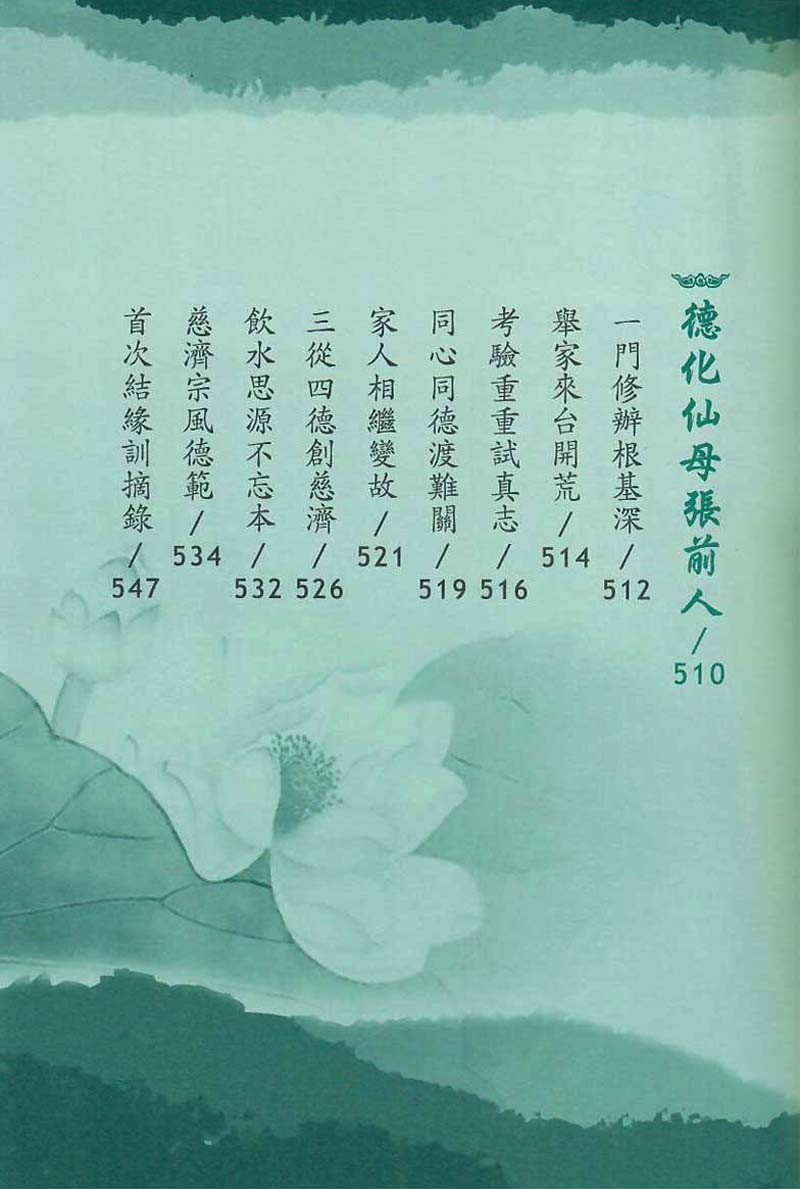 德化仙母張前人/510
一門修辦根基深/512
舉家來台開荒/514
考驗重重試真志/516
同心同德渡難關/519
家人相繼變故/521
三從四德創慈濟/526
飲水思源不忘本/532
慈濟宗風德範/534
首次結緣訓摘錄/547